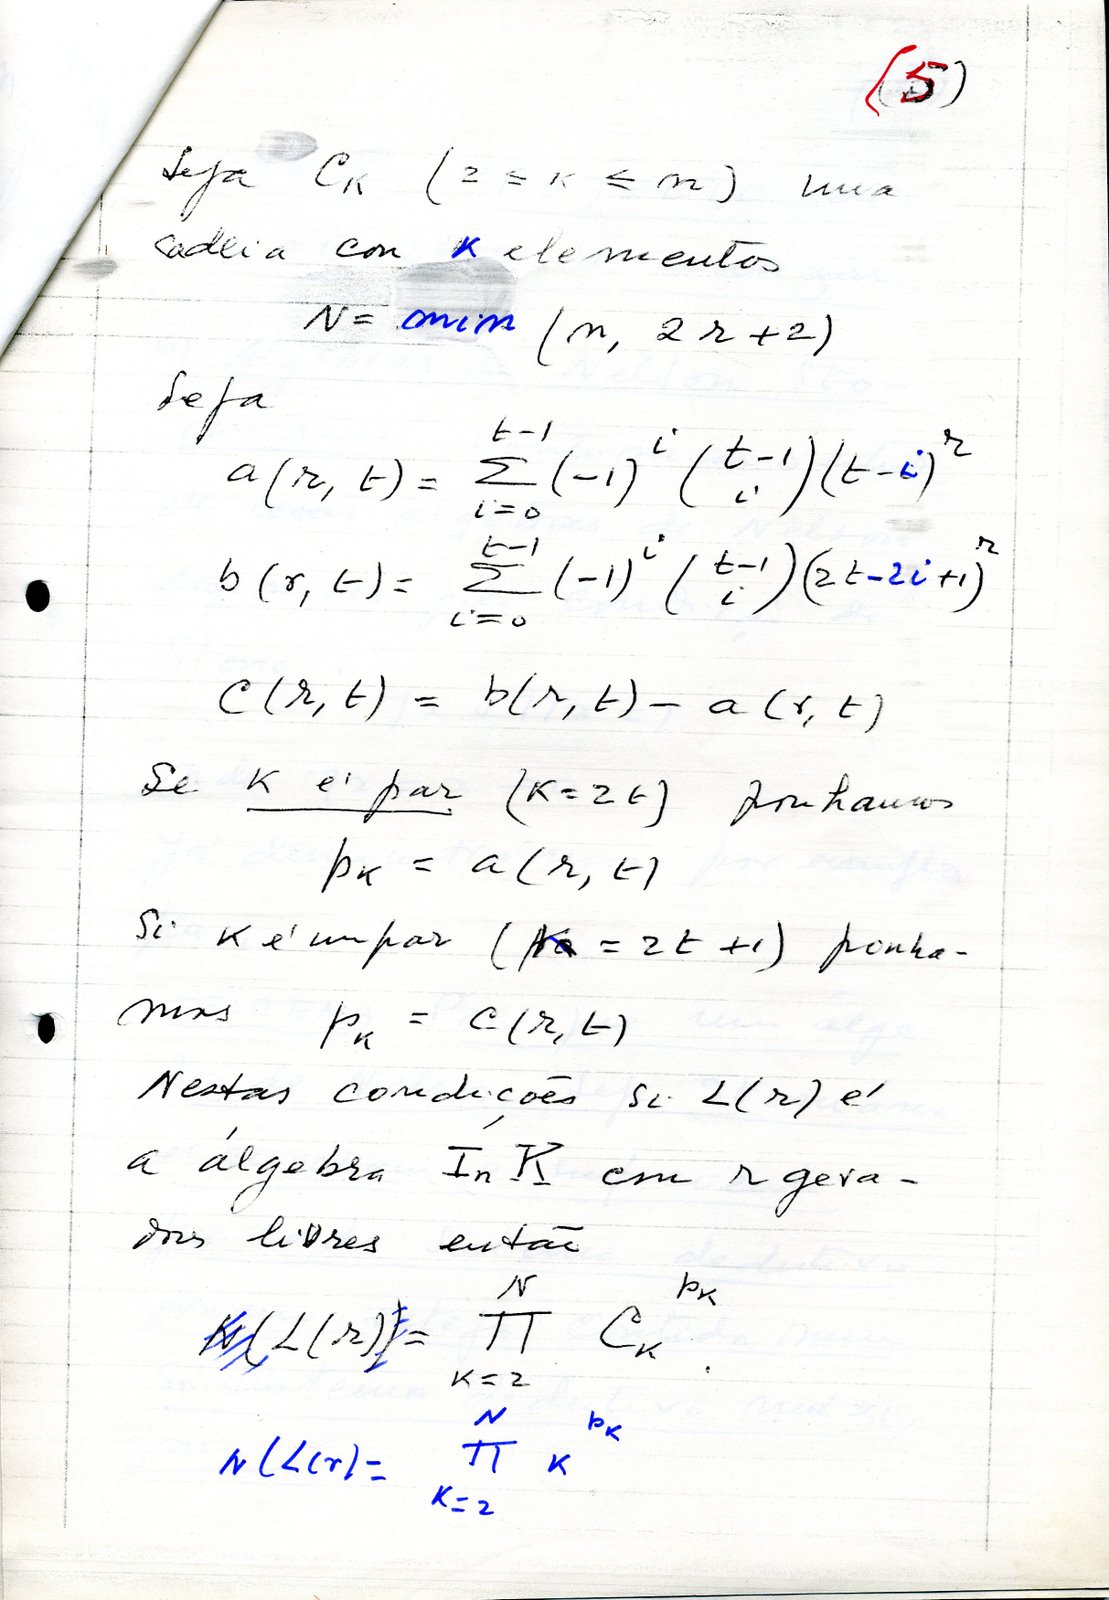 (5)
Seja C_K (2 ≤ K ≤ n) uma
cadeia con K elementos
N = min (n, 2r+2)
Seja
a(r, t) = \sum_{i=0}^{t-1} (-1)^i \binom{t-1}{i} (t-i)^r
b(r, t) = \sum_{i=0}^{t-1} (-1)^i \binom{t-1}{i} (2t-2i+1)^r
c(r, t) = b(r, t) - a(r, t)
Se K é par (K=2t) ponhamos
p_K = a(r, t)
Si K é impar (K = 2t+1) ponha-
mos p_K = c(r, t)
Nestas condições si L(r) é
a álgebra I_n K com r gera-
dores livres então
L(r) = \prod_{K=2}^{N} C_K^{p_K}.
N(L(r) = \prod_{K=2}^{N} K^{p_K}